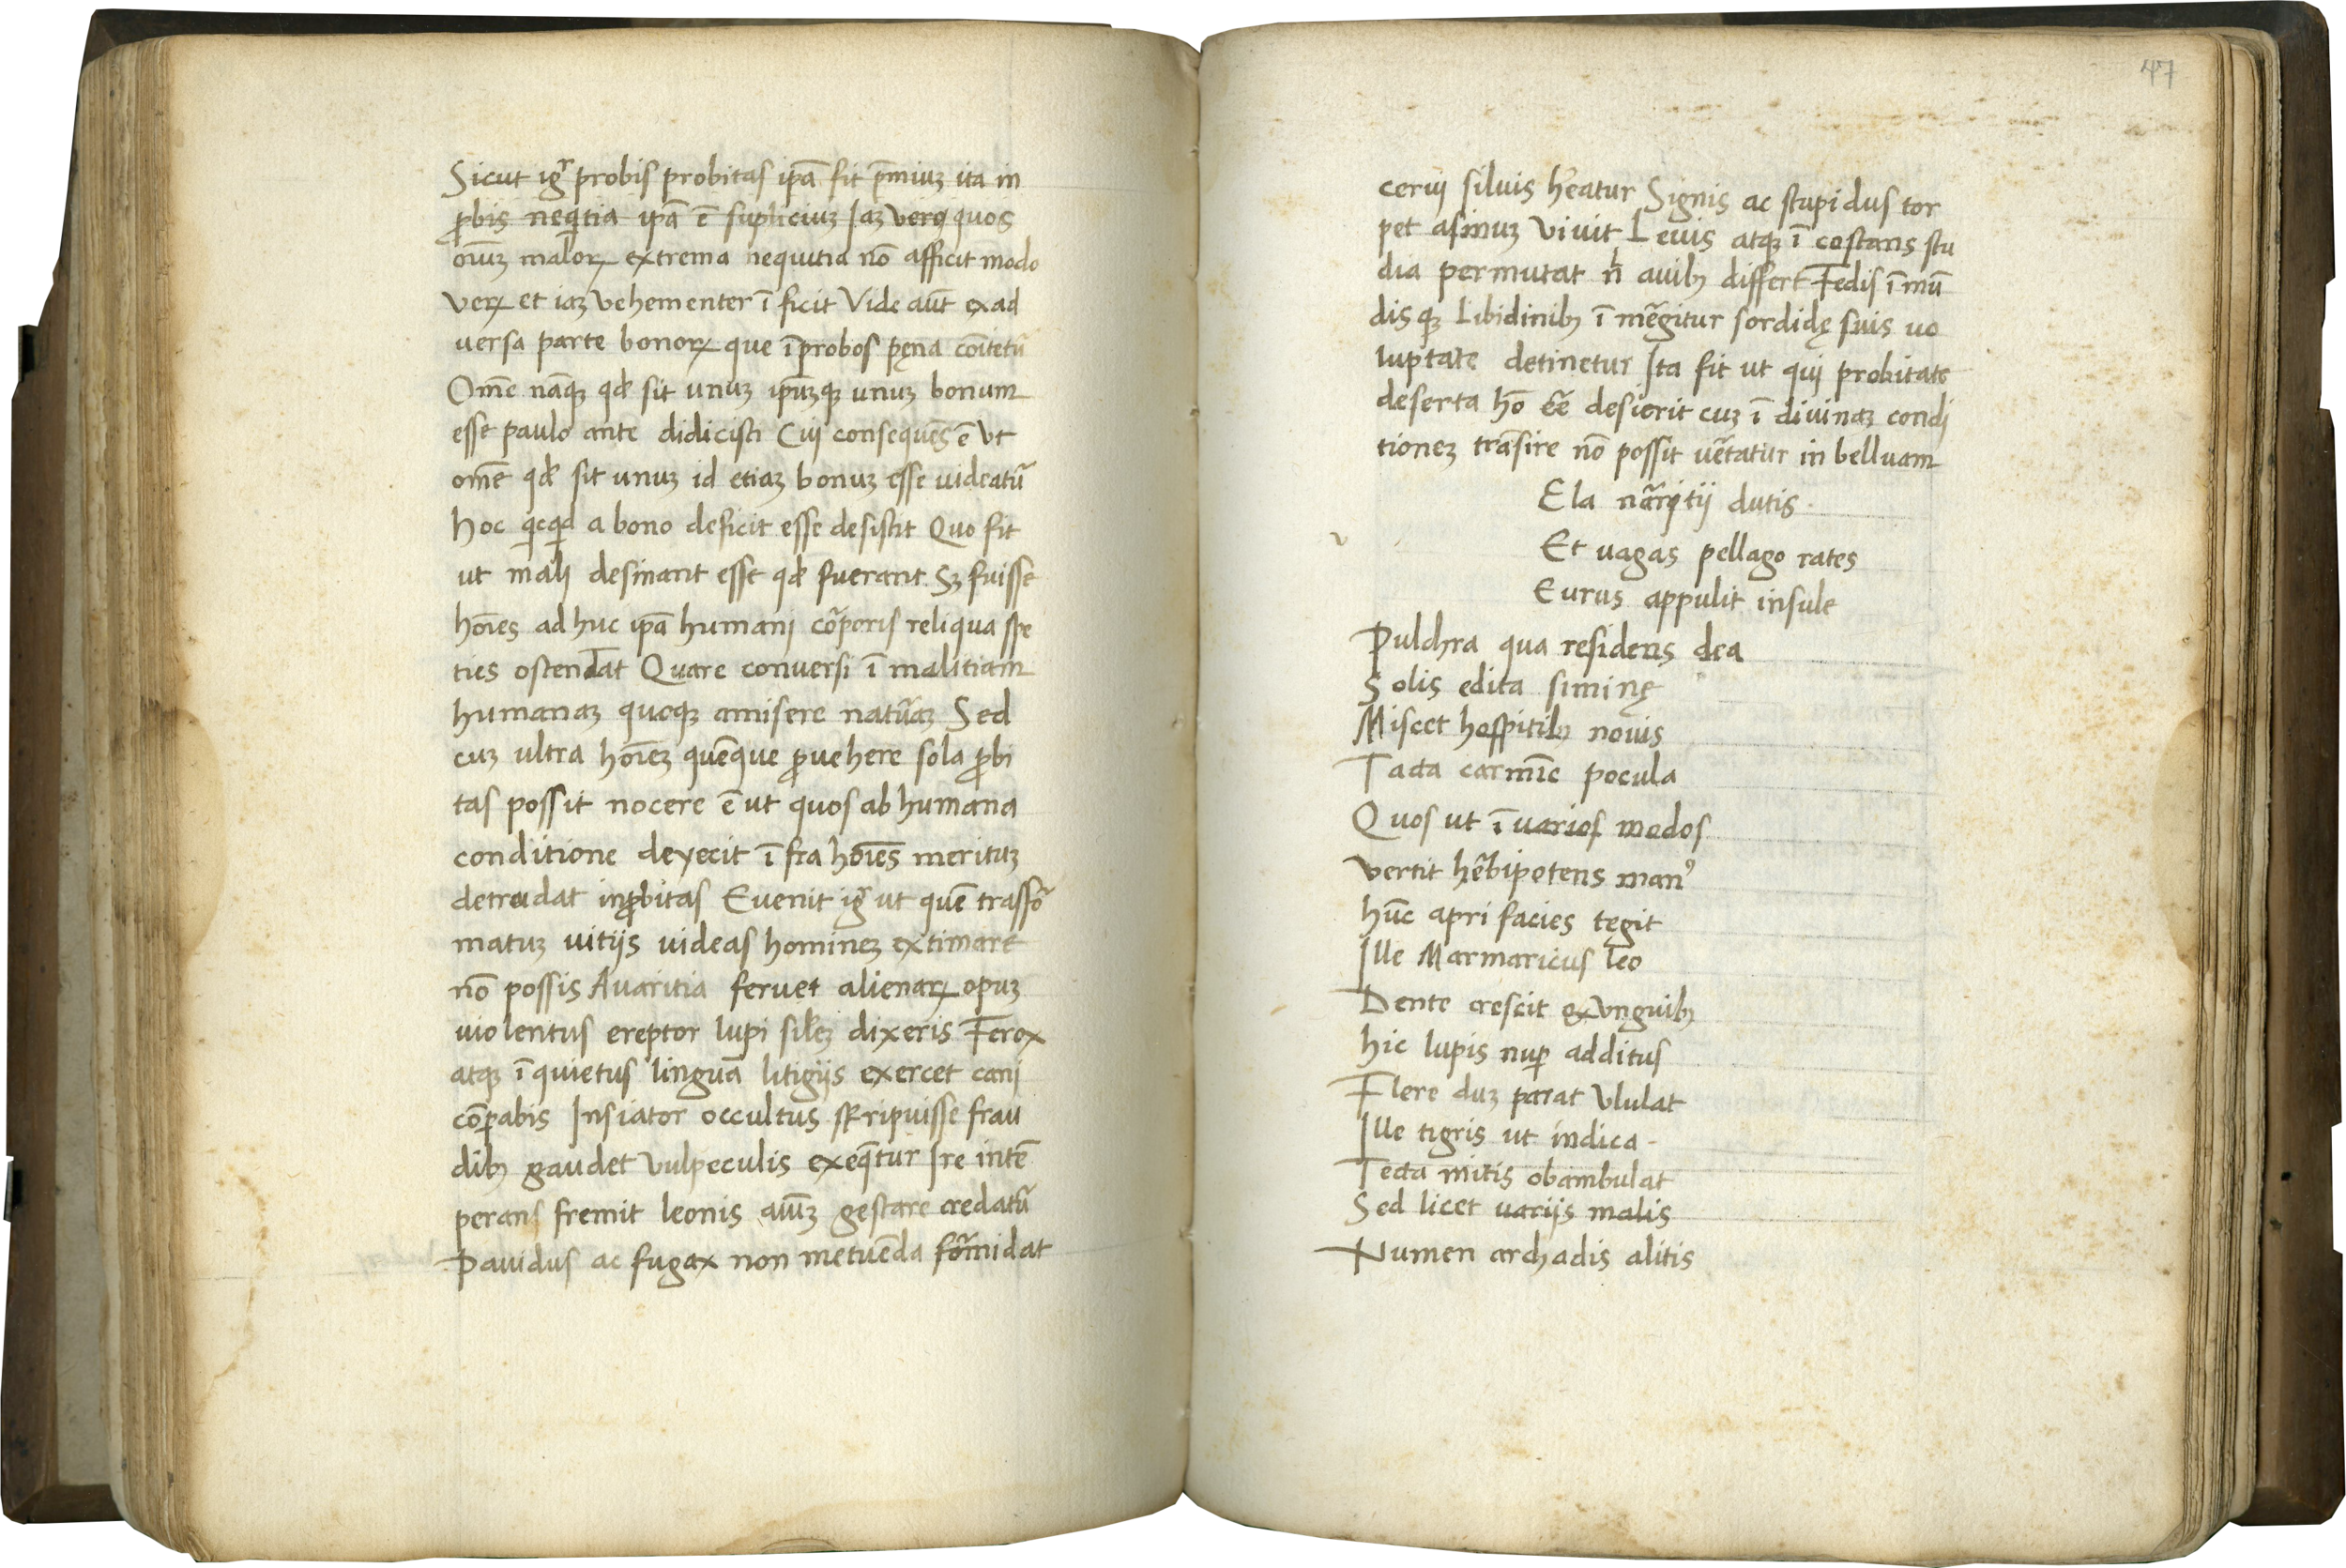 Sicut igr̄ probis probitas ipā fit p̄miuʒ ita in
ꝓbis neqitia ipā ē supliciuʒ Iaʒ vero quos
oīuʒ maloꝝ extrema nequitia nō afficit modo
veꝝ et iaʒ vehementer ī ficit Vide aūt ex ad
versa parte bonoꝝ que īprobos pęna comītetū
Omē nāqꝫ qđ sit unuʒ ipūʒqꝫ unuʒ bonum
esse paulo ante didicisti Cui consequēs ē Vt
omē qđ sit unuʒ id etiaʒ bonuʒ esse videatū
hoc qicqid a bono deficit esse desistit Quo fit
ut mali desinant esse qđ fuerant Sʒ fuisse
hoīes ad huc ipā humani cōrporis reliqua spe
ties ostendat Quare conversi ī malitiam
humanaʒ quoqꝫ amisere natūraʒ Sed
cuʒ ultra hoīeʒ quēque ꝓvehere sola ꝓbi
tas possit nocere ē ut quos ab humana
conditione deyecit ī fra hoīes merituʒ
detrudat inꝓbitas Evenit igr̄ ut quē trasfō
matuʒ vitijs videas homineʒ extimare
nō possis Avaritia fervet alienaꝝ opuʒ
violentus ereptor lupi sil̄eʒ dixeris Ferox
atqꝫ ī quietus linguā litigijs exercet cani
cōꝑabis Insiator occultus srripuisse frau
dibꝫ gaudet Vulpeculis exeq̄tur Ire intē
perans fremit leonis aīuʒ gestare credatū
Pavidus ac fugax non metuēda fōrmidat
47
cervi silvis h̄eatur Signis ac stupidus tor
pet asinuʒ vivit Levis atqꝫ ī costans stu
dia permutat nl̄ avibꝫ differt Fedis ī mū
disqꝫ Libidinibꝫ ī mēgitur sordidę suis vo
luptate detinetur Ita fit ut qui probitate
deserta hō eē̄ desierit cuʒ ī divinaʒ condi
tioneʒ trāsire nō possit vētatur in belluam
Ela nāritii dutis
Et vagas pellago rates
Eurus appulit insule
Pulchra qua residens dea
Solis edita siminę
Miscet hospitibꝫ novis
Tacta carmīe pocula
Quos ut ī varios modos
vertit hēbipotens manꝰ
hūc apri facies tegit
Ille Marmaricus leo
Dente crescit ex unguibꝫ
hic lupis nuꝑ additus
Flere duʒ parat Ululat
Ille tigris ut indica
Tecta mitis obambulat
Sed licet varijs malis
Numen archadis alitis